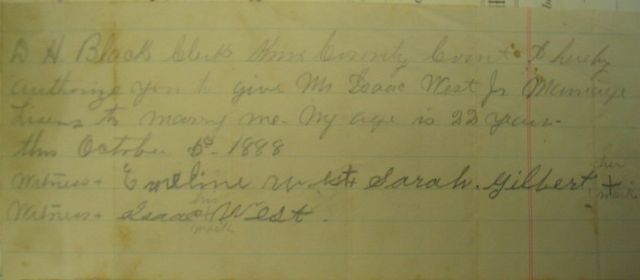 D H. Black Clerk this County Court I hereby
authorize you to give Mr Isaac West Jr Marriage
Licens to marry me. My age is 22 years.
this October 6th 1888
Witness. Emeline West Sarah. Gilbert + her mark
Witness. Isaac his mark West.